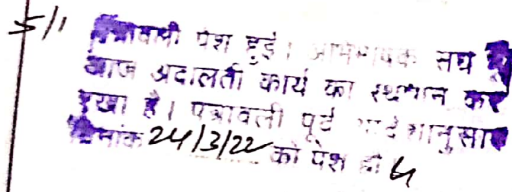 5/1
पत्रावली पेश हुई। अभिभाषक संघ ने
आज अदालती कार्य का स्थगन कर
रखा है। पत्रावली पूर्व आदेशानुसार
दिनांक 24/3/22 को पेश हो